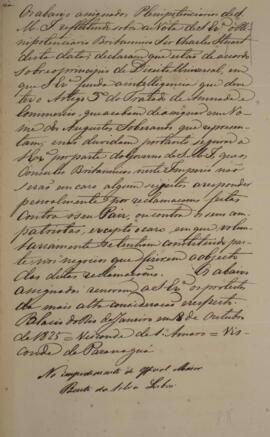 Os abaixo assignados Plenipotenciarios de S.
M. I. reflectindo sobre a Nota de S. Exª o Ple-
nipotenciario Britannico Sir Charles Stuart
desta data, declaram que estão de acordo
sobre os principios de Direito Universal, em
que S. Exª funda a intelligencia que deu
ao Artigo 5º do Tratado de Amizade e
Commercio, que acabam de assignar em No-
me dos Augustos Soberanos que represen-
tam, e não duvidam portanto segurar a
S. Exª por parte do Governo de S. M. I. que os
Consules Britannicos neste Imperio não
serão em caso algum sujeitos a responder
pessoalmente por reclamações feitas
contra o seu Paiz, ou contra os seus com-
patriotas, excepto o caso, em que volun-
tariamente se tenham constituido par-
te nos negocios que fizerem o objecto
das ditas reclamações. Os abaixo
assignados renovam a S. Exª os protestos
da mais alta consideração e respeito.
Palacio do Rio de Janeiro em 18 de Outubro
de 1825 = Visconde de Sto Amaro = Vis-
conde de Paranaguá
No impedimento do Official Maior
Bento da Silva Lisboa